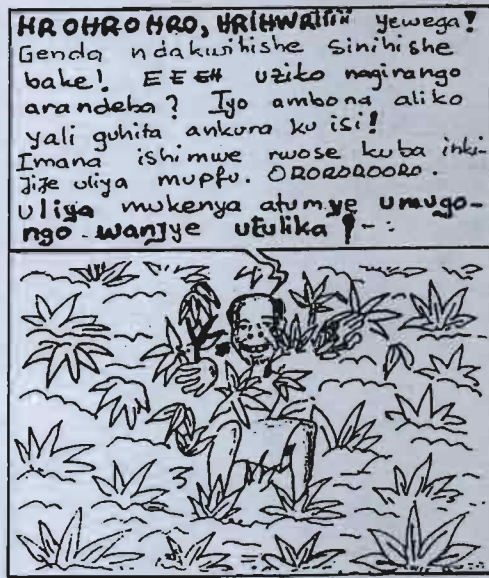 HROHROHRO, HRIHWRIIIII yewega!
Genda ndakwihishe sinihishe
bake! EEEH uziko nagirango
arandeba? Iyo ambona aliko
yali guhita ankura ku isi!
Imana ishimwe rwose kuba inki-
jije uliya mupfu. OROROROORO.
uliya mukenya atumye umugo-
ngo wanjye utulika !-: